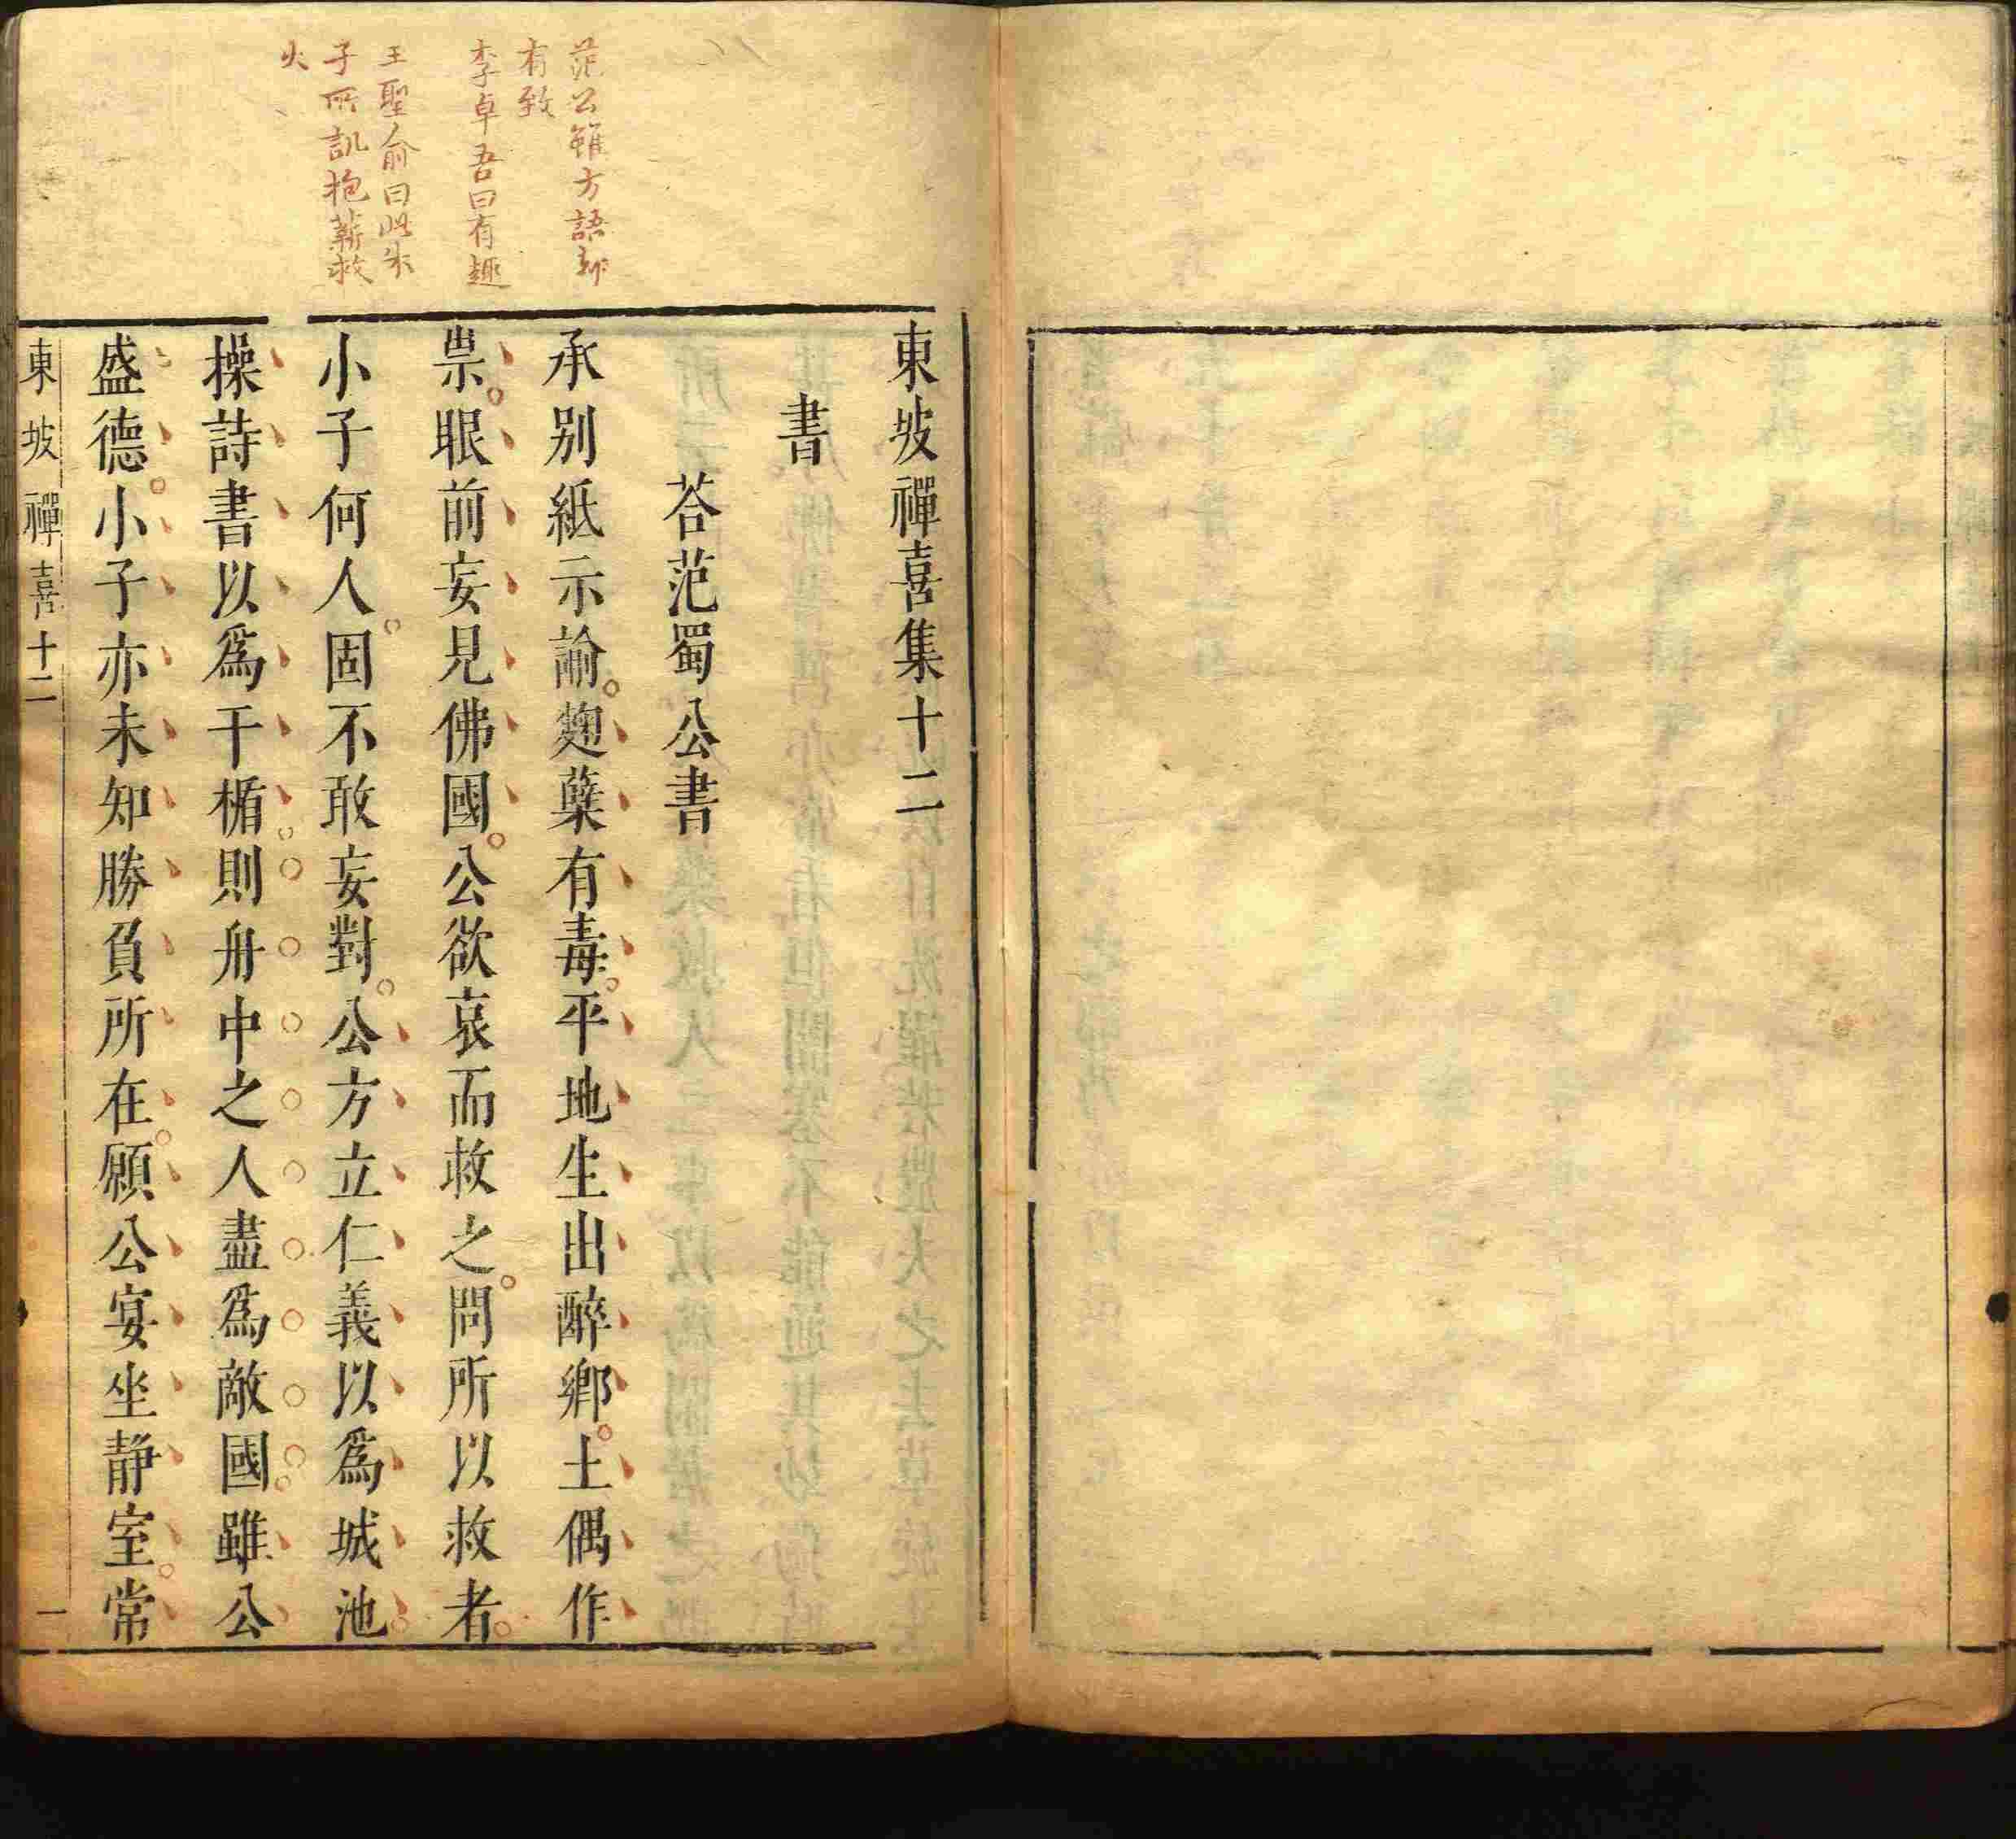 范公雖方語却
有致
李卓吾曰有趣
王聖俞曰此朱
子所訊抱薪救
火
東坡禪喜集十二
書
荅范蜀公書
承别紙示諭麴蘖有毒平地生出醉鄉土偶作
祟眼前妄見佛國公欲哀而救之問所以救者
小子何人固不敢妄對公方立仁義以爲城池
操詩書以爲干楯則舟中之人盡爲敵國雖公
盛德小子亦未知勝負所在願公宴坐静室常
東坡禪喜十二
一